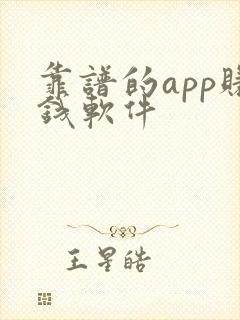 靠譜的app賺
錢軟件
王星皓